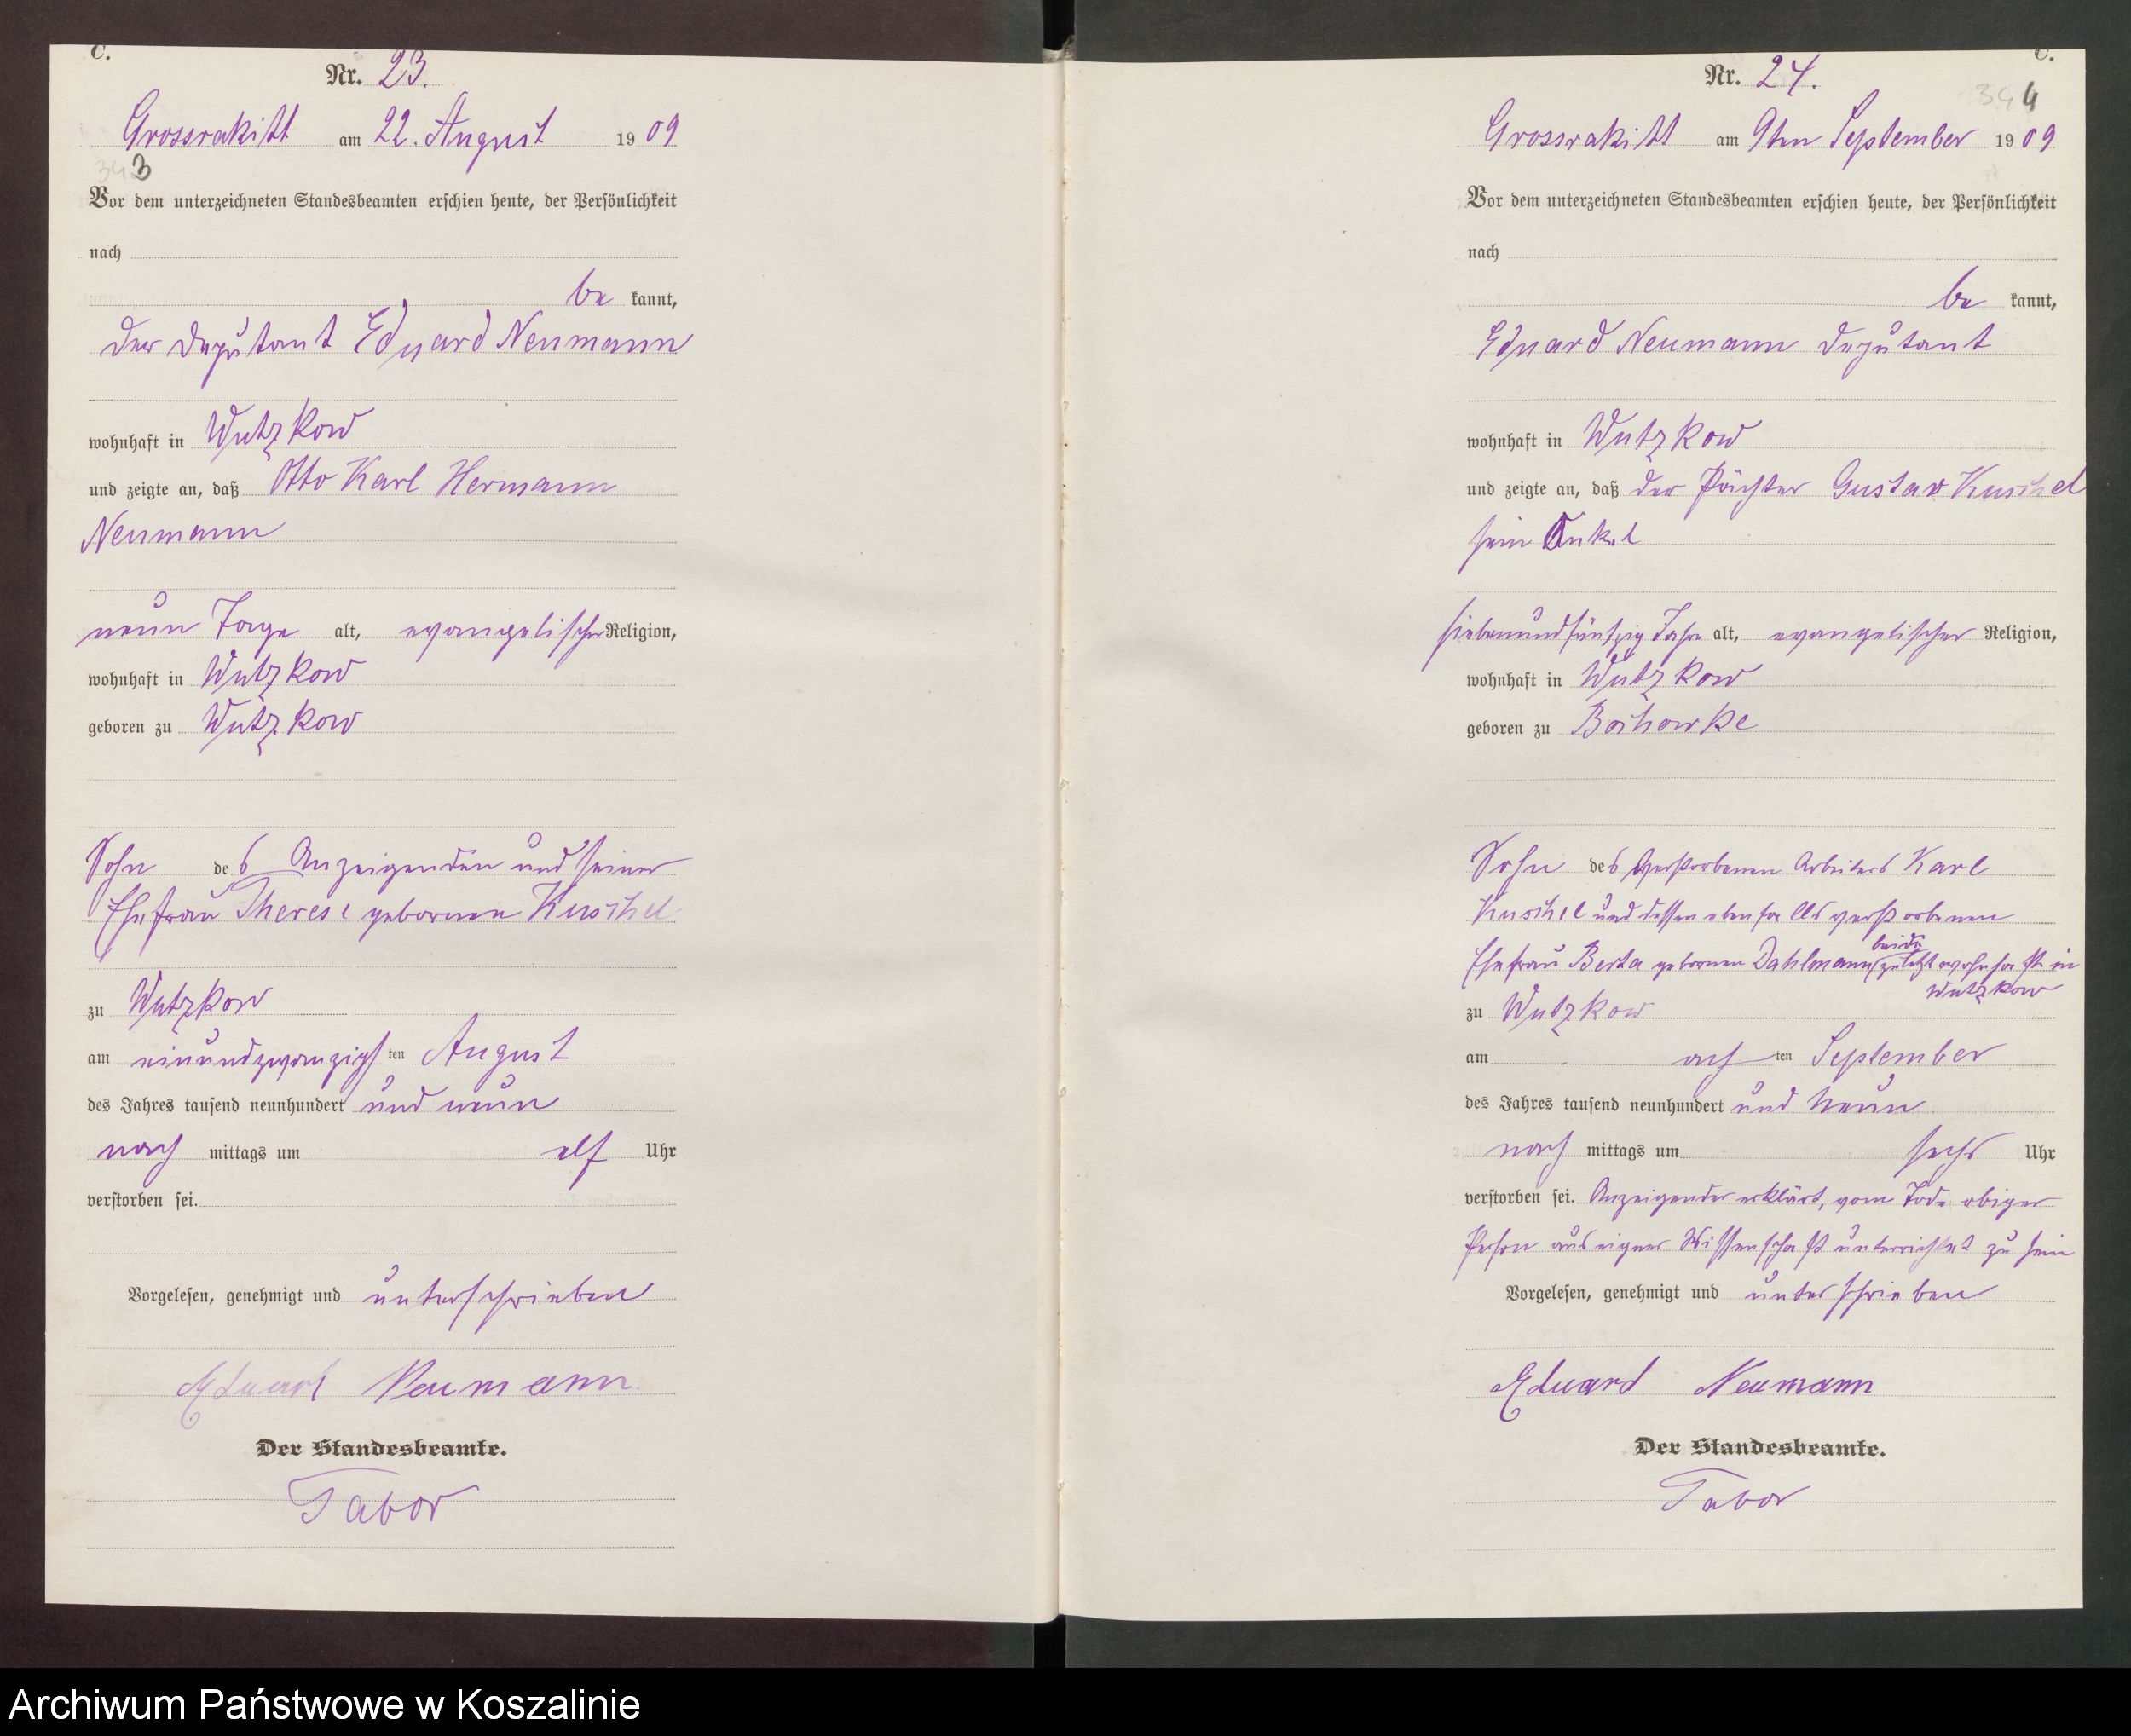 C.
Nr. 23.
Grossrakitt am 22. August 1909
343
Vor dem unterzeichneten Standesbeamten erschien heute, der Persönlichkeit
nach
be kannt,
der Deputant Eduard Neumann
wohnhaft in Wutzkow
und zeigte an, daß Otto Karl Hermann
Neumann
neun Tage alt, evangelischer Religion,
wohnhaft in Wutzkow
geboren zu Wutzkow
Sohn des Anzeigenden und seiner
Ehefrau Therese gebornen Kuschel
zu Wutzkow
am einundzwanzigsten August
des Jahres tausend neunhundert und neun
nach mittags um elf Uhr
verstorben sei.
Vorgelesen, genehmigt und unterschrieben
Eduard Neumann
Der Standesbeamte.
Tabor
C.
Nr. 24.
344
Grossrakitt am 9ten September 1909
Vor dem unterzeichneten Standesbeamten erschien heute, der Persönlichkeit
nach
be kannt,
Eduard Neumann Deputant
wohnhaft in Wutzkow
und zeigte an, daß der Pächter Gustav Kuschel
sein Onkel
siebenundfünfzig Jahre alt, evangelischer Religion,
wohnhaft in Wutzkow
geboren zu Bochowke
Sohn des verstorbenen Arbeiters Karl
Kuschel und dessen ebenfalls verstorbenen
Ehefrau Berta gebornen Dahlmann, beide zuletzt wohnhaft in
Wutzkow
zu Wutzkow
am achten September
des Jahres tausend neunhundert und neun
nach mittags um sechs Uhr
verstorben sei. Anzeigender erklärt, vom Tode obiger
Person aus eigner Wissenschaft unterrichtet zu sein
Vorgelesen, genehmigt und unterschrieben
Eduard Neumann
Der Standesbeamte.
Tabor
Archiwum Państwowe w Koszalinie